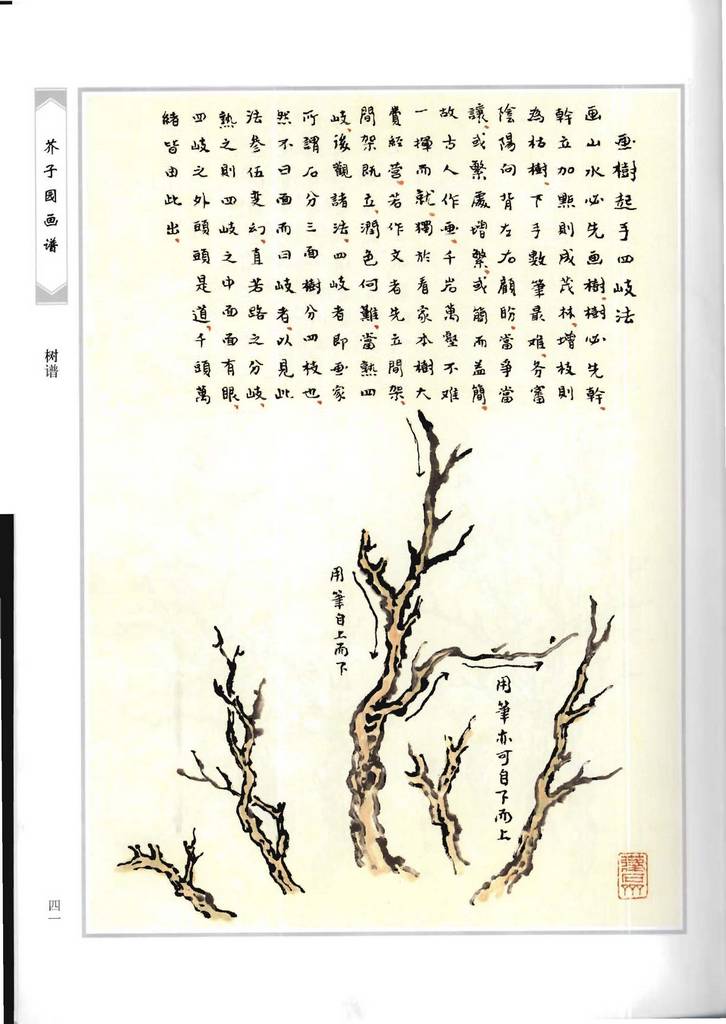 画樹起手四岐法
画山水必先画樹樹必先幹
幹立加點則成茂林增枝則
為枯樹下手數筆最难务審
陰陽向背左右顧盼當爭當
讓或繁處增繁或簡而益簡
故古人作画千岩萬壑不难
一揮而就獨於看家本樹大
費經营若作文者先立間架
間架既立潤色何難當熟四
岐後觀諸法四岐者即画家
所謂石分三面樹分四枝也
然不曰面而曰岐者以見此
法叅伍变幻直若路之分岐
熟之則四岐之中面面有眼
四岐之外頭頭是道千頭萬
緒皆由此出
用筆自上而下
用筆亦可自下而上
芥子园画谱
树谱
四一